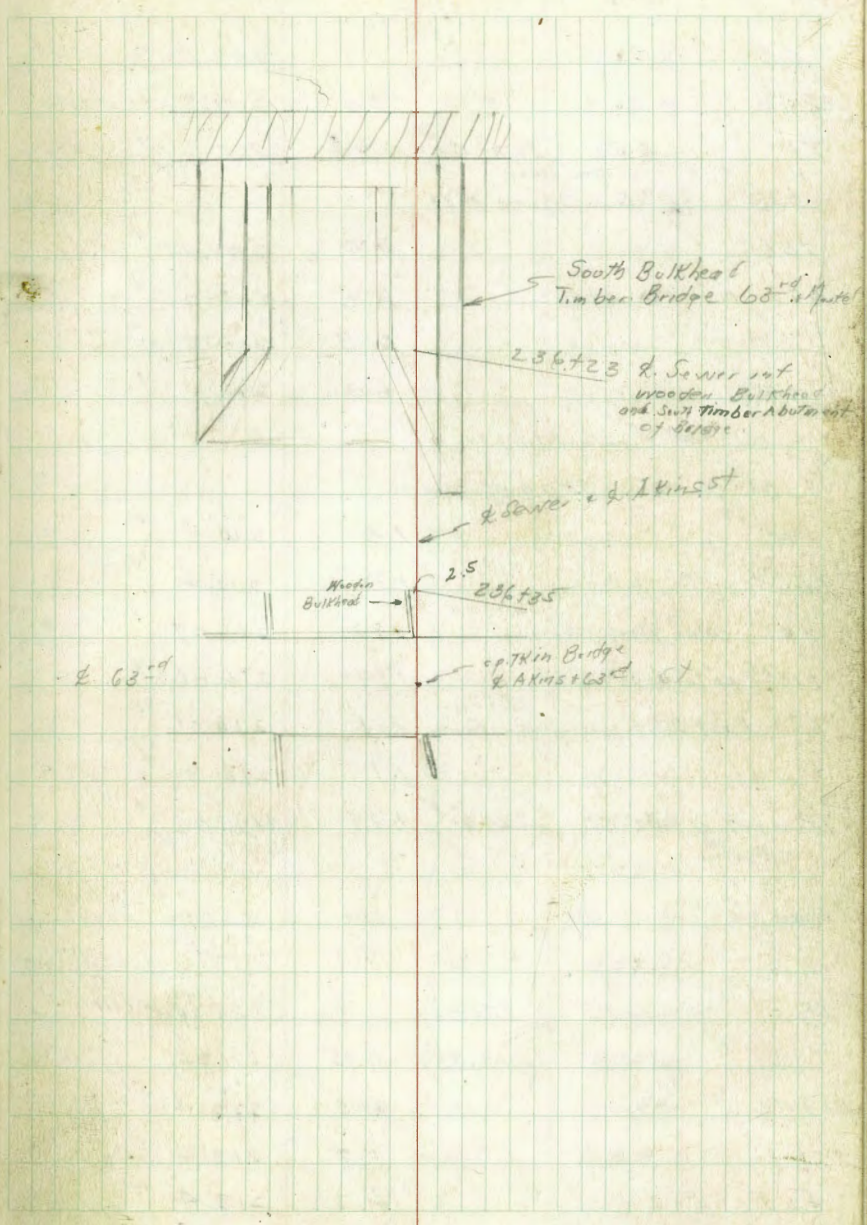 South Bulkhead
Timber Bridge 63rd
236+23 ℄ Sewer int
wooden Bulkhead
and South Timber Abutment
of Bridge
℄ Sewer & ℄ Akins St
2.5
Wooden
Bulkhead
236+35
℄ 63rd
c.p. TK in Bridge
℄ Akins + 63rd St